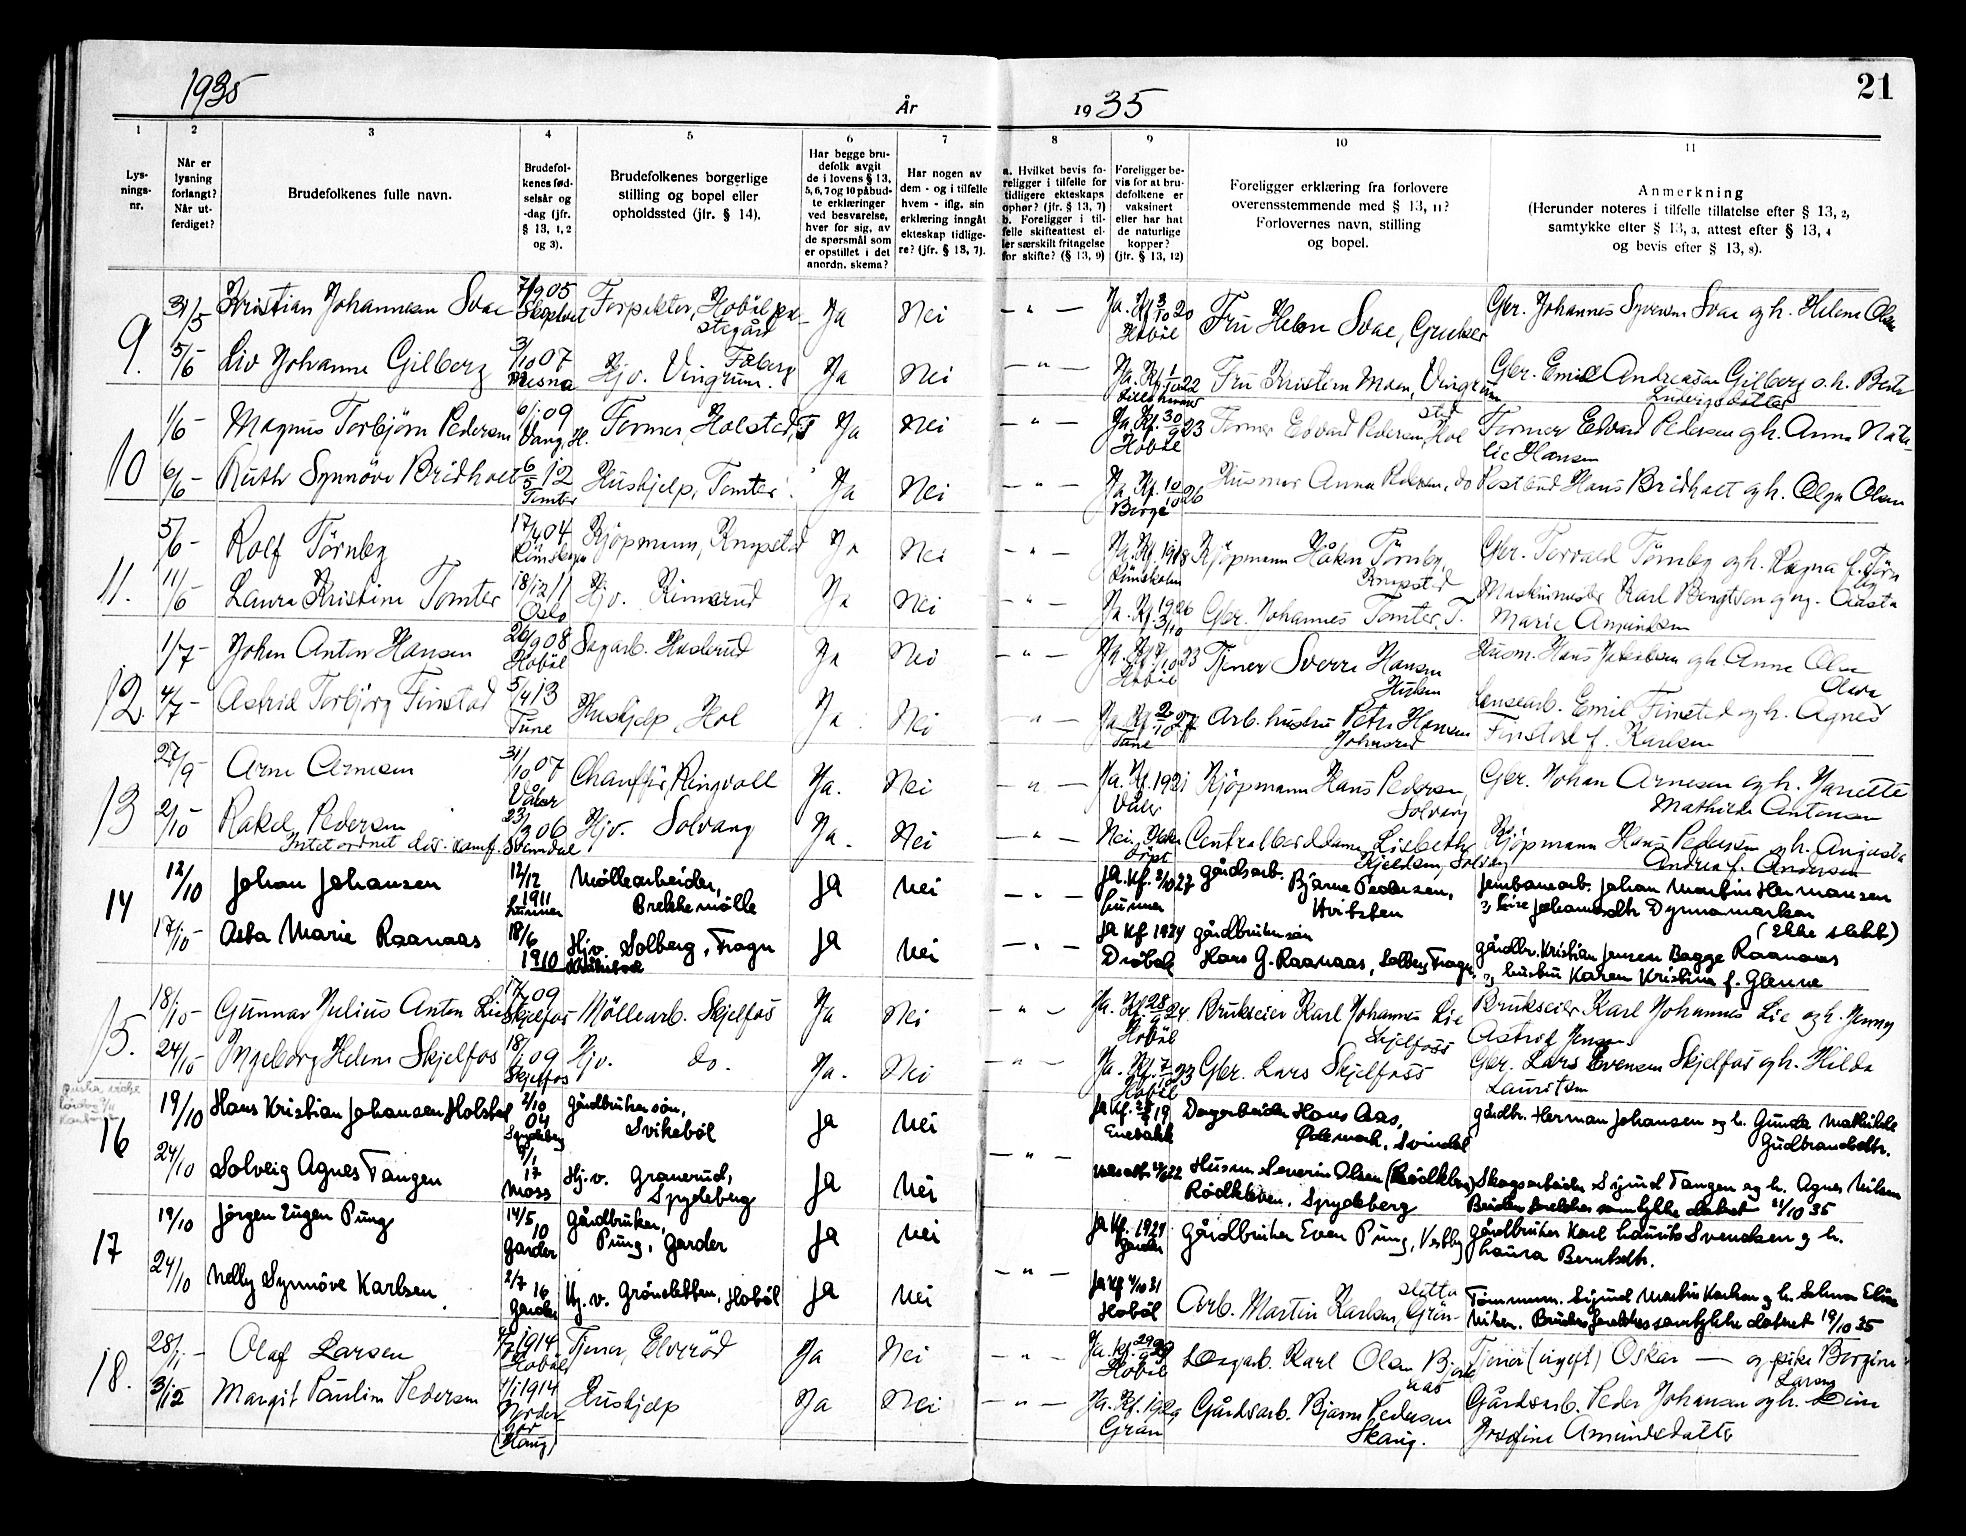 1935
År
1935
21
1
2
3
4
5
6
7
8
9
10
11
Lys-
nings-
nr.
Når er
lysning
forlangt?
Når ut-
ferdiget?
Brudefolkenes fulle navn.
Brudefol-
kenes fød-
selsår og
-dag (jfr.
§ 13, 1, 2
og 3).
Brudefolkenes borgerlige
stilling og bopel eller
opholdssted (jfr. § 14).
Har begge bru-
defolk avgit
de i lovens § 13,
5, 6, 7 og 10 påbud-
te erklæringer
ved besvarelse,
hver for sig, av
de spørsmål som
er opstillet i det
anordn. skema?
Har nogen av
dem - og i tilfelle
hvem - iflg. sin
erklæring inngått
ekteskap tidlige-
re? (jfr. § 13, 7).
a. Hvilket bevis fo-
religger i tilfelle for
tidligere ekteskaps
ophør? (jfr. § 13, 7)
b. Foreligger i til-
felle skifteattest el-
ler særskilt fritagelse
for skifte? (§ 13, 9)
Foreligger be-
vis for at bru-
defolkene er
vaksinert
eller har hat
de naturlige
kopper?
(jfr. § 13, 12)
Foreligger erklæring fra forlovere
overensstemmende med § 13, 11?
Forlovernes navn, stilling
og bopel.
Anmerkning
(Herunder noteres i tilfelle tillatelse efter § 13, 2,
samtykke efter § 13, 3, attest efter § 13, 4
og bevis efter § 13, 8).
9.
31/5
Kristian Johannesen Svae
7/9 05
Forpakter, Hobøl pre-
stegård
Ja
Nei
- " -
Ja. Kf. 3/10 20
Hobøl
Fru Helen Svae,
Gbr. Johannes Syversen Svae og h. Helene Olsen
5/6
Liv Johanne Gilberg
3/10 07
Mesna
Hjv. Vingrom. Fåberg
Ja
Nei
- " -
Ja. Kf. 1/10 22
Lillehammer
Fru Kristine Moen, Vingrom
Gbr. Emil Andreasen Gilberg o.h. Berte
Ludvigsdatter
10
1/6 -
Magnus Torbjørn Pedersen
6/1 09
Vang, H.
Former, Holstad,
Ja
Nei
- " -
Ja. Kf. 30/9 23
Hobøl
Former Edvard Pedersen, Hol
stad
Former Edvard Pedersen og h. Anna Nata-
lie Hansen
6/6 -
Ruth Synnöve Bridholt
6/5 12
Tomter
Hushjelp, Tomter
Ja
Nei
- " -
Ja Kf. 10/10 26
Berge
Husmor Anna Pedersen, do
Postbud Hans Bridholt og h. Olga Olsen
11.
5/6 -
Rolf Törnby
17/4 04
Kjöpmann, Knapstad
Ja
Nei
- " -
Ja. Kf. 1918
Kjöpmann Håkon Törnby,
Knapstad
Gbr. Torvald Törnby og h. Ragna f. Törn
by
11/6
Laura Kristine Tomter
18/12 11
Oslo
Hjv. Rimerud
Ja
Nei
- " -
Ja. Kf. 1926
3/10
Gbr. Johannes Tomter, T.
Maskinmester Karl Bengtsen og ug. Aasta
Marie Amundsen
12.
1/7 -
Johan Anton Hansen
26/9 08
Hobøl
Sagarb. Haslerud
Ja
Nei
- " -
Hobøl
Tjener Sverre Hansen
Husm. Hans Jakobsen og h. Anne Olse
Olava
4/7 -
Astrid Torbjørg Finstad
5/4 13
Tune
Hushjelp, Hol
Ja
Nei
- " -
Ja. Kf. 2/10 27
Tune
Arb. hustru Petra Hansen
Lensearb. Emil Finstad og h. Agnes
Finstad f. Karlsen
13
27/9 -
Arne Arnesen
31/10 07
Våler
Chauffør, Ringvoll
Ja.
Nei
- " -
Ja. Kf. 1921
Våler
Kjöpmann Hans Pedersen,
Solvang
Gbr. Johan Arnesen og h. Janette
Mathilde Antonsen
2/10 -
Rakel Pedersen
23/3 06
Svindal
Hjv. Solvang
Ja.
Nei
- " -
Nei.
Centralborddame Lisbeth
Kjeldsen, Solvang
Kjöpmann Hans Pedersen og h. Augusta
Andrea f. Andersen
14
12/10
Johan Johansen
12/12
1911
Lunner
Möllearbeider,
Brekke mölle
Ja
Nei
- " -
Ja. Kf. 2/10 27
Lunner
gårdsarb.
Bjarne Pedersen,
Hvitsten
Jernbanearb. Johan Martin Hermansen
Dynnamarken
(Ikke slekt)
17/10 -
Asta Marie Raanaas
18/6
1910
Kråkstad
Hjv. Solberg, Frogn
Ja
Nei
- " -
Ja Kf 1924
Dröbak
gårdbrukersön
Hans G. Raanaas, Solberg, Frogn
gårdbr. Kristian Jensen Bagge Raanaas
og hustru Karen Kristine f. Glenne
15.
18/10 -
Gunnar Julius Anton Lie
17/7 09
Skjelfos
Möllearb. Skjelfos
Ja
Nei
- " -
Ja. Kf. 28/9 24
Hobøl
Brukseier Karl Johannes Lie
Skjelfoss
Brukseier Karl Johannes Lie og h. Jenny
Astrid Jensen
24/10
Ingeborg Helene Skjelfos
18/1 09
Skjelfos
Hjv. do.
Ja.
Nei
- " -
Ja. Kf. 7/10 23
Hobøl
Gbr. Lars Skjelfoss
Gbr. Lars Evensen Skjelfos og h. Hilda
Lauritsen
16
19/10
Hans Kristian Johansen Holstad
2/10
04
Spydeberg
gårdbrukersön,
Svikeböl
Ja
Nei
- " -
Enebakk
Dagarbeider Hans Aas,
Ødemark, Svindal
gårdbr. Herman Johansen og h. Gunda Mathilde
Gudbrandsdtr.
24/10
Solveig Agnes Tangen
9/1
17
Moss
Hj. v. Granerud,
Spydeberg
Ja
Nei
Husm Severin Olsen (Rödkleven)
Rödkleven, Spydeberg
Skogsarbeider Sigurd Tangen og h. Agnes Nilsen
Brudens foreldres samtykke datert 21/10 35
17
19/10
Jörgen Eugen Pung
14/5
10
Garder
gårdbruker,
Pung, Garder
Ja
Nei
- " -
Ja Kf. 1924
Garder
gårdbruker Even Pung, Vestby
gårdbruker Karl Laurits Svendsen og h.
Laura Berntsdtr.
24/10
Nelly Synnöve Karlsen
2/7 16
Garder
Hj. v. Grönsletten, Hoböl
Ja
Nei
Ja Kf 4/10 31
Hoböl
Arb. Martin Karlsen, Grön-
sletta
Tömmerm. Sigurd Martin Karlsen og h. Selma Elise
Nilsen. Brudens foreldres samtykke datert 19/10 35
18.
28/11 -
Olaf Larsen
1914
Hobøl
Tjener, Elveröd
Ja
Nei
- " -
Ja. Kf. 29/9 29
Hobøl
Karl Olsen Bjerk
aas
Tjener (ugift) Oskar — og pike Borgine
Larsen
3/12
Margit Pauline Pedersen
1/1 1914
Nordre
(Haug)
Hushjelp
Ja
Nei
- " -
Ja. Kf. 1929
Gran
Gårdsarb. Bjarne Pedersen
Skaug.
Gårdsarb. Peder Johansen og h. Lina
Josefine Amundsdatter